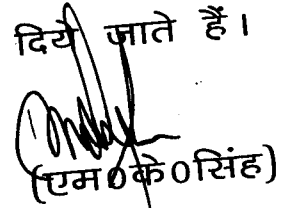 दिये जाते हैं।
(एम0के0सिंह)